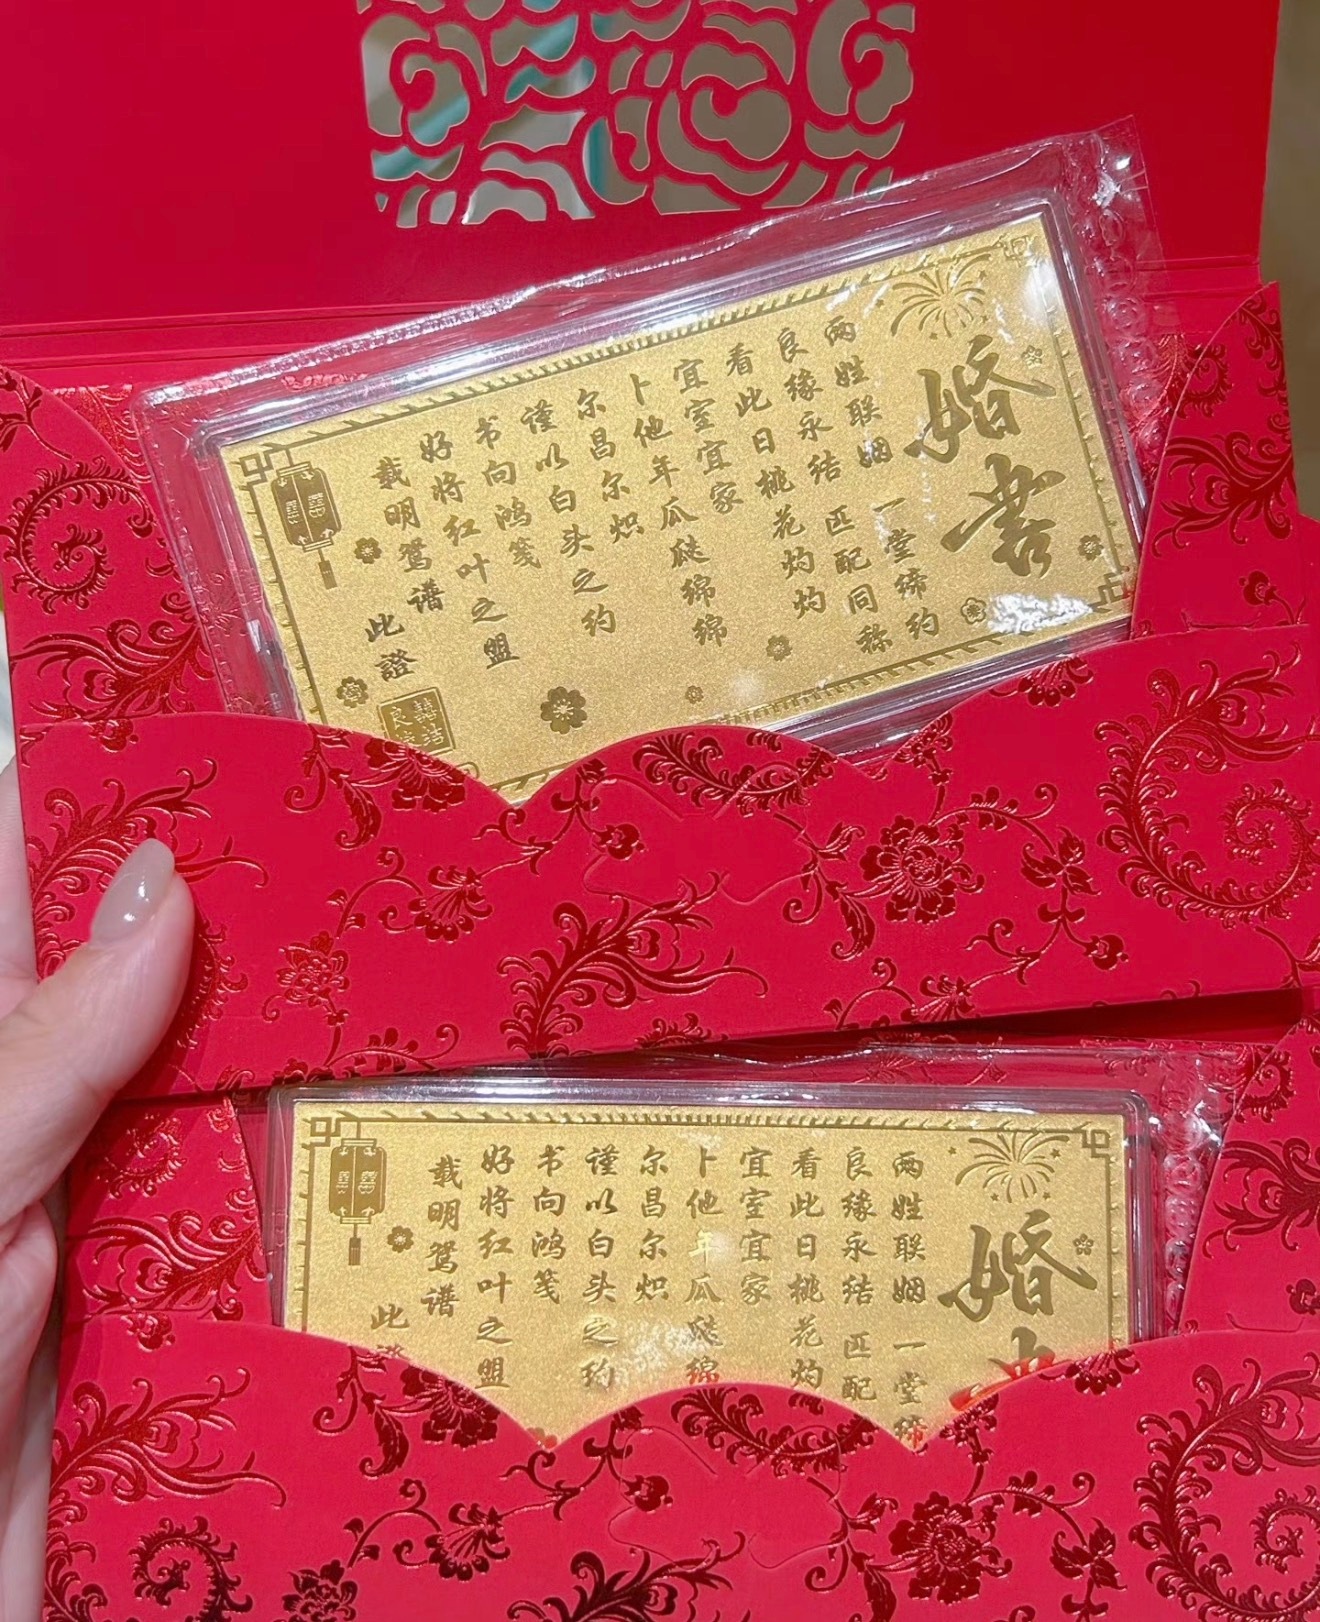 婚書
两姓联姻 一堂缔约
良缘永结 匹配同称
看此日桃花灼灼
宜室宜家
卜他年瓜瓞绵绵
尔昌尔炽
谨以白头之约
书向鸿笺
好将红叶之盟
载明鸳谱
此證
囍结
良
囍
囍
婚
两姓联姻 一堂缔
良缘永结 匹配
看此日桃花灼
宜室宜家
卜他年瓜瓞绵
尔昌尔炽
谨以白头之约
书向鸿笺
好将红叶之盟
载明鸳谱
此
囍
囍